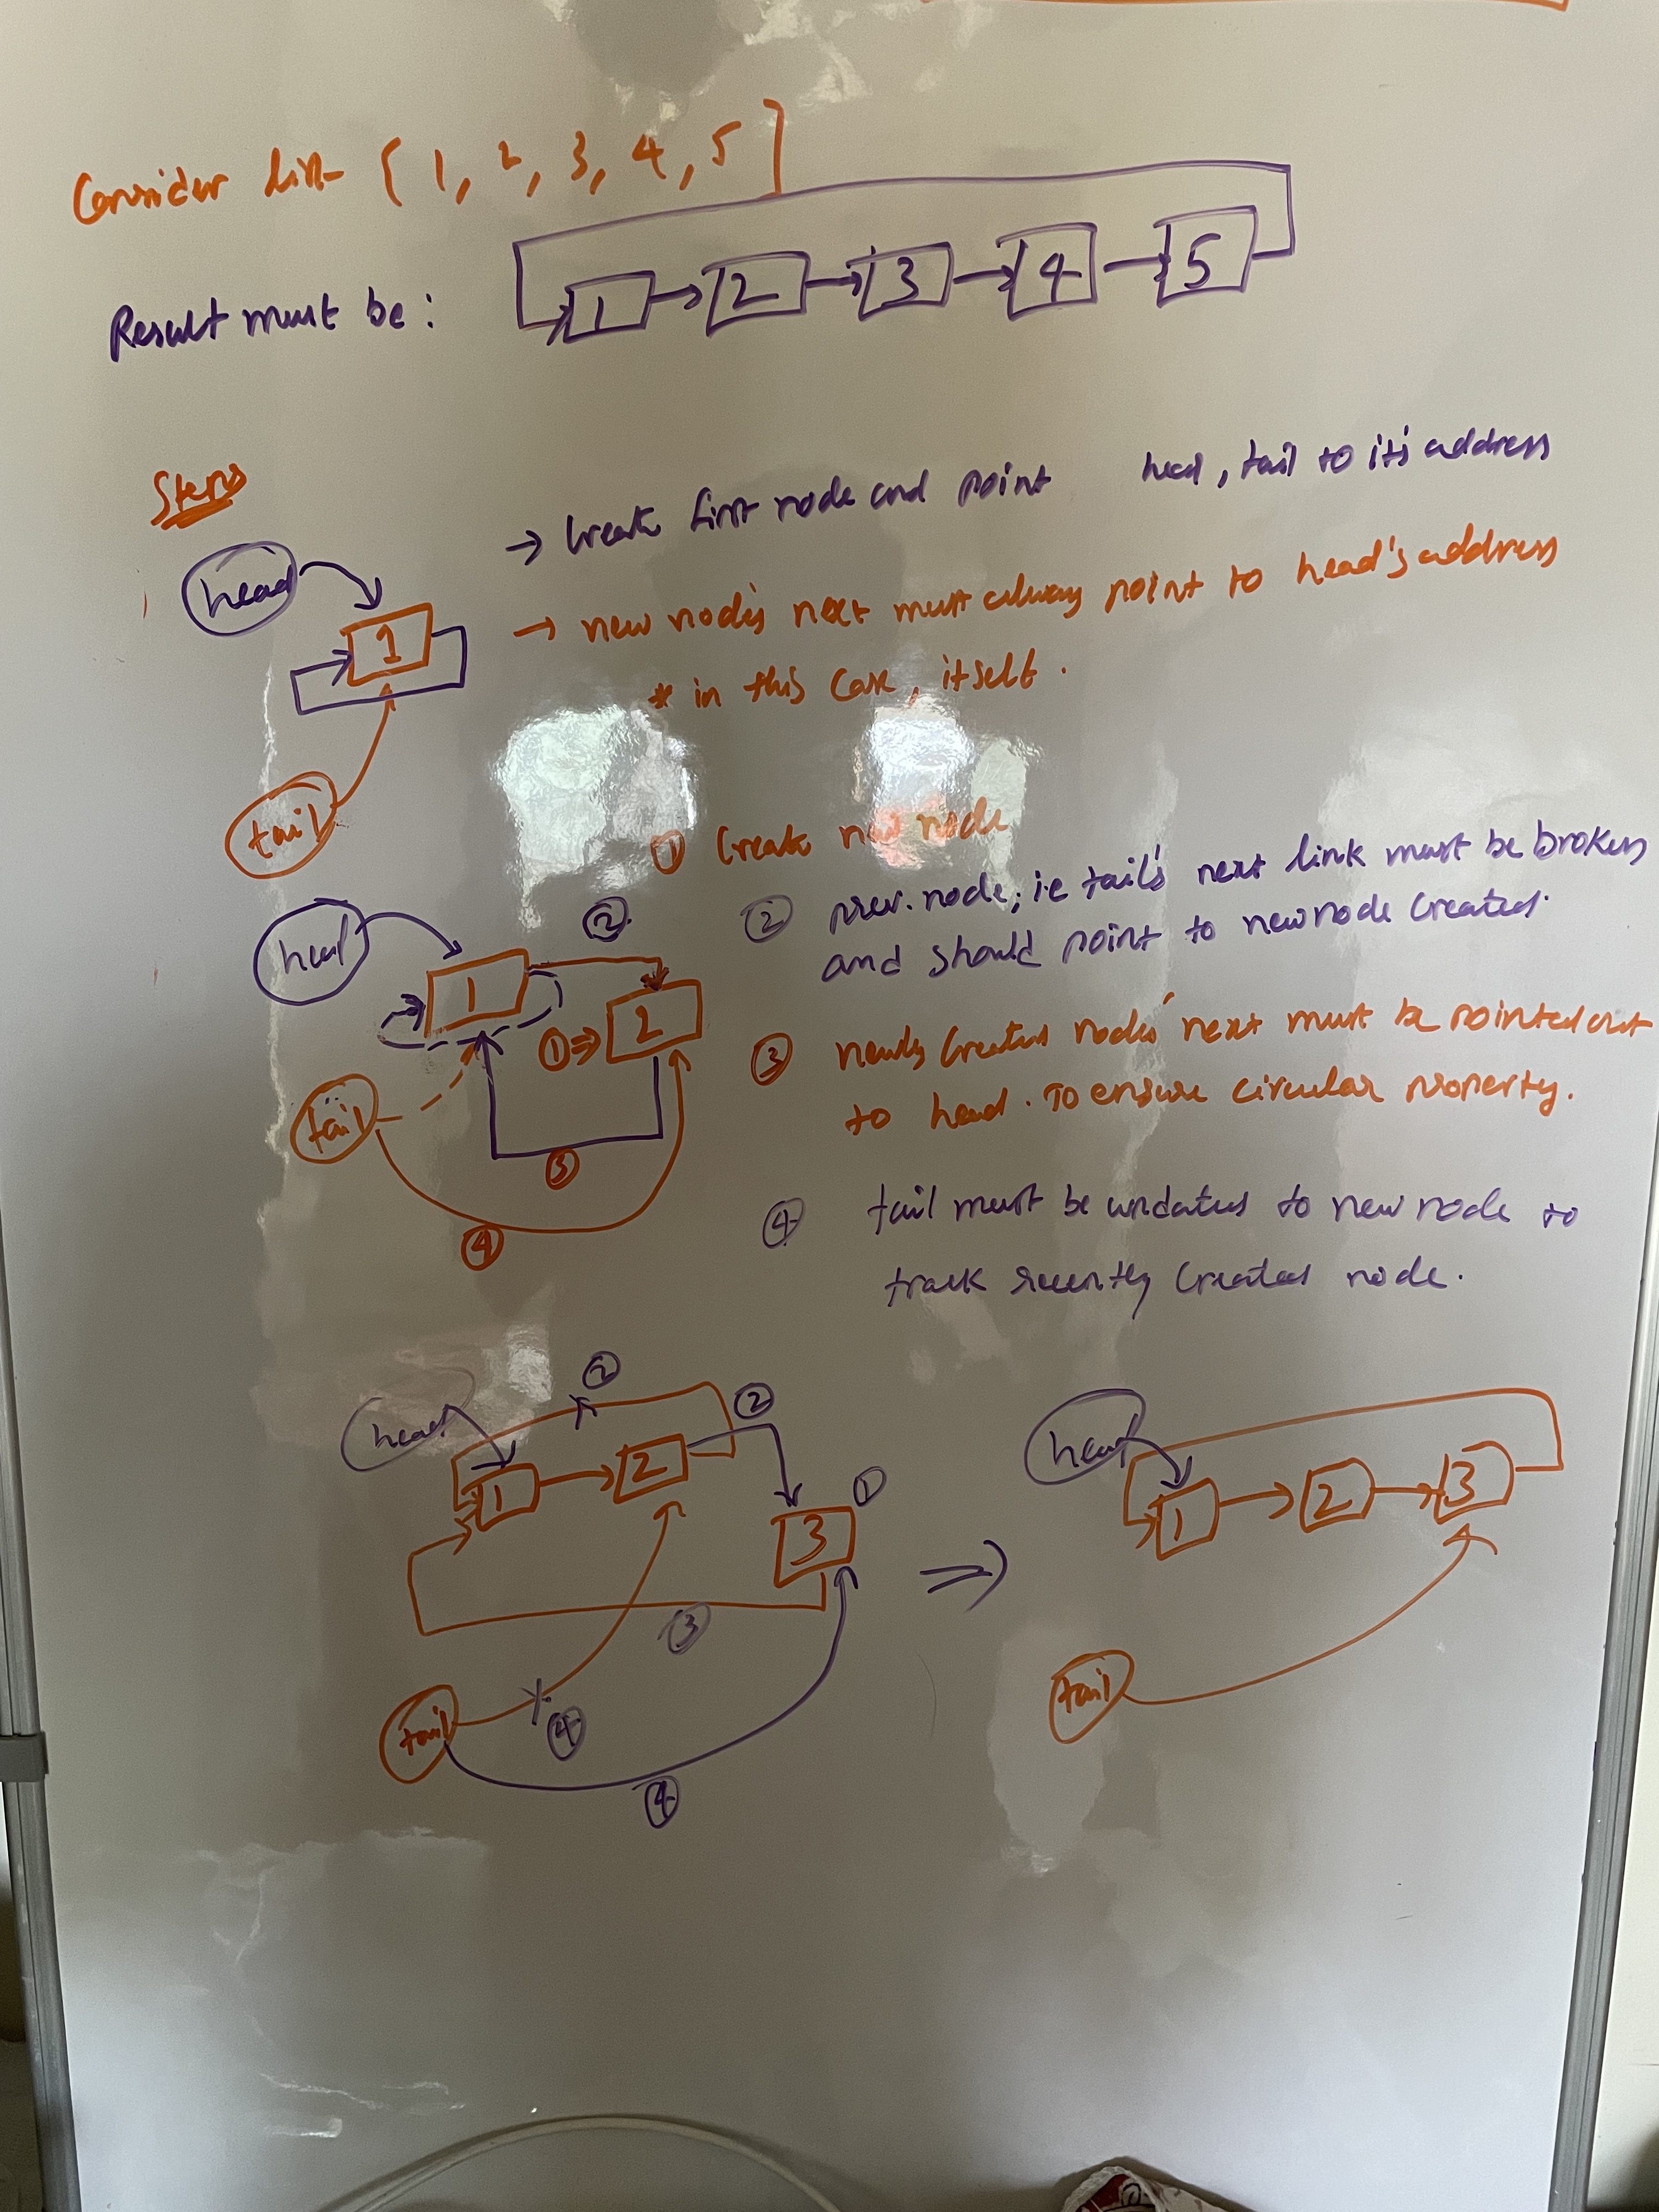 Consider list [ 1, 2, 3, 4, 5 ]
Result must be :
1 2 3 4 5
Steps
head
1
tail
→ Create first node and point head, tail to it's address
→ new node's next must always point to head's address
* in this case, itself .
① Create new node
② prev. node; i.e tail's next link must be broken
and should point to new node created.
③ newly created nodes' next must be pointed out
to head . To ensure circular property.
④ tail must be updated to new node to
track recently created node .
head
②
1
① ⇒ 2
tail
③
④
head
② ②
1 2
①
3
③
tail
④
④
⇒
head
1 2 3
tail